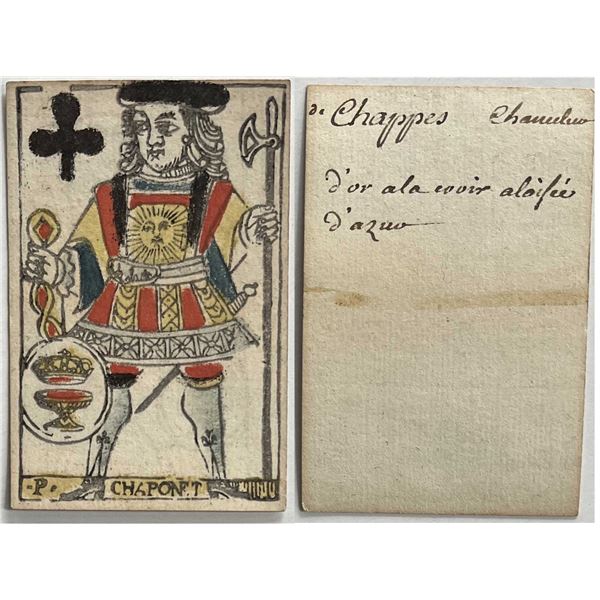 -P-
CHAPONET
de Chappes
d'or a la croix aloisée
d'azur